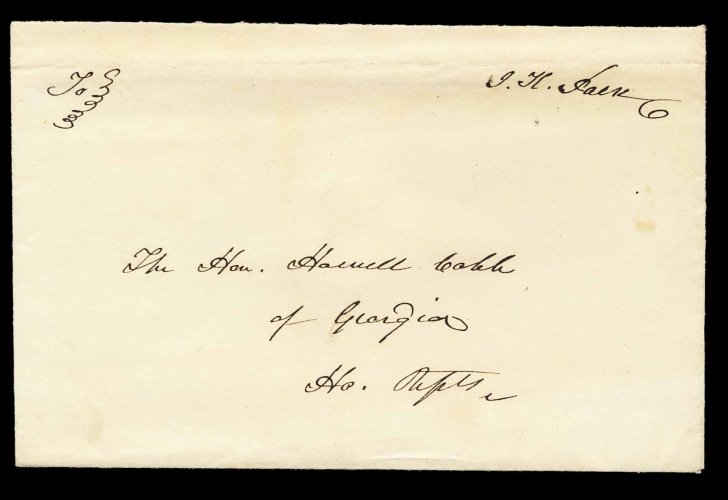 To
J. K. Polk
The Hon. Howell Cobb
of Georgia
Ho. Repts